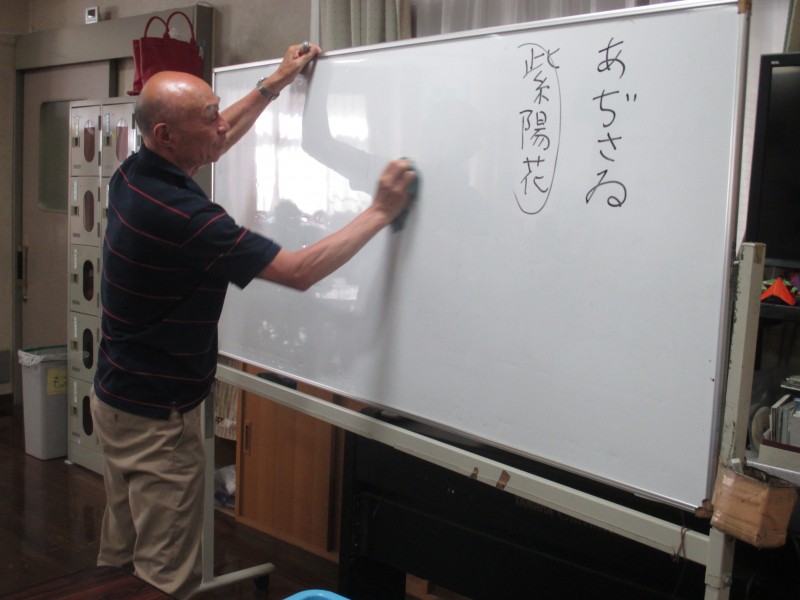 あぢさゐ
紫陽花